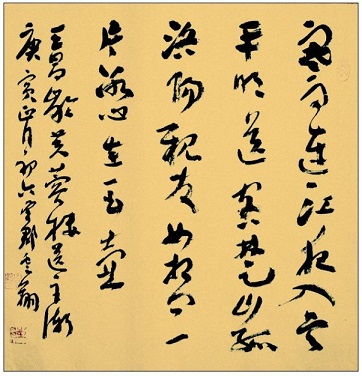 寒雨連江夜入吴
平明送客楚山孤
洛陽親友如相问一
片冰心在玉壶
王昌龄芙蓉楼送辛渐
庚寅正月初六